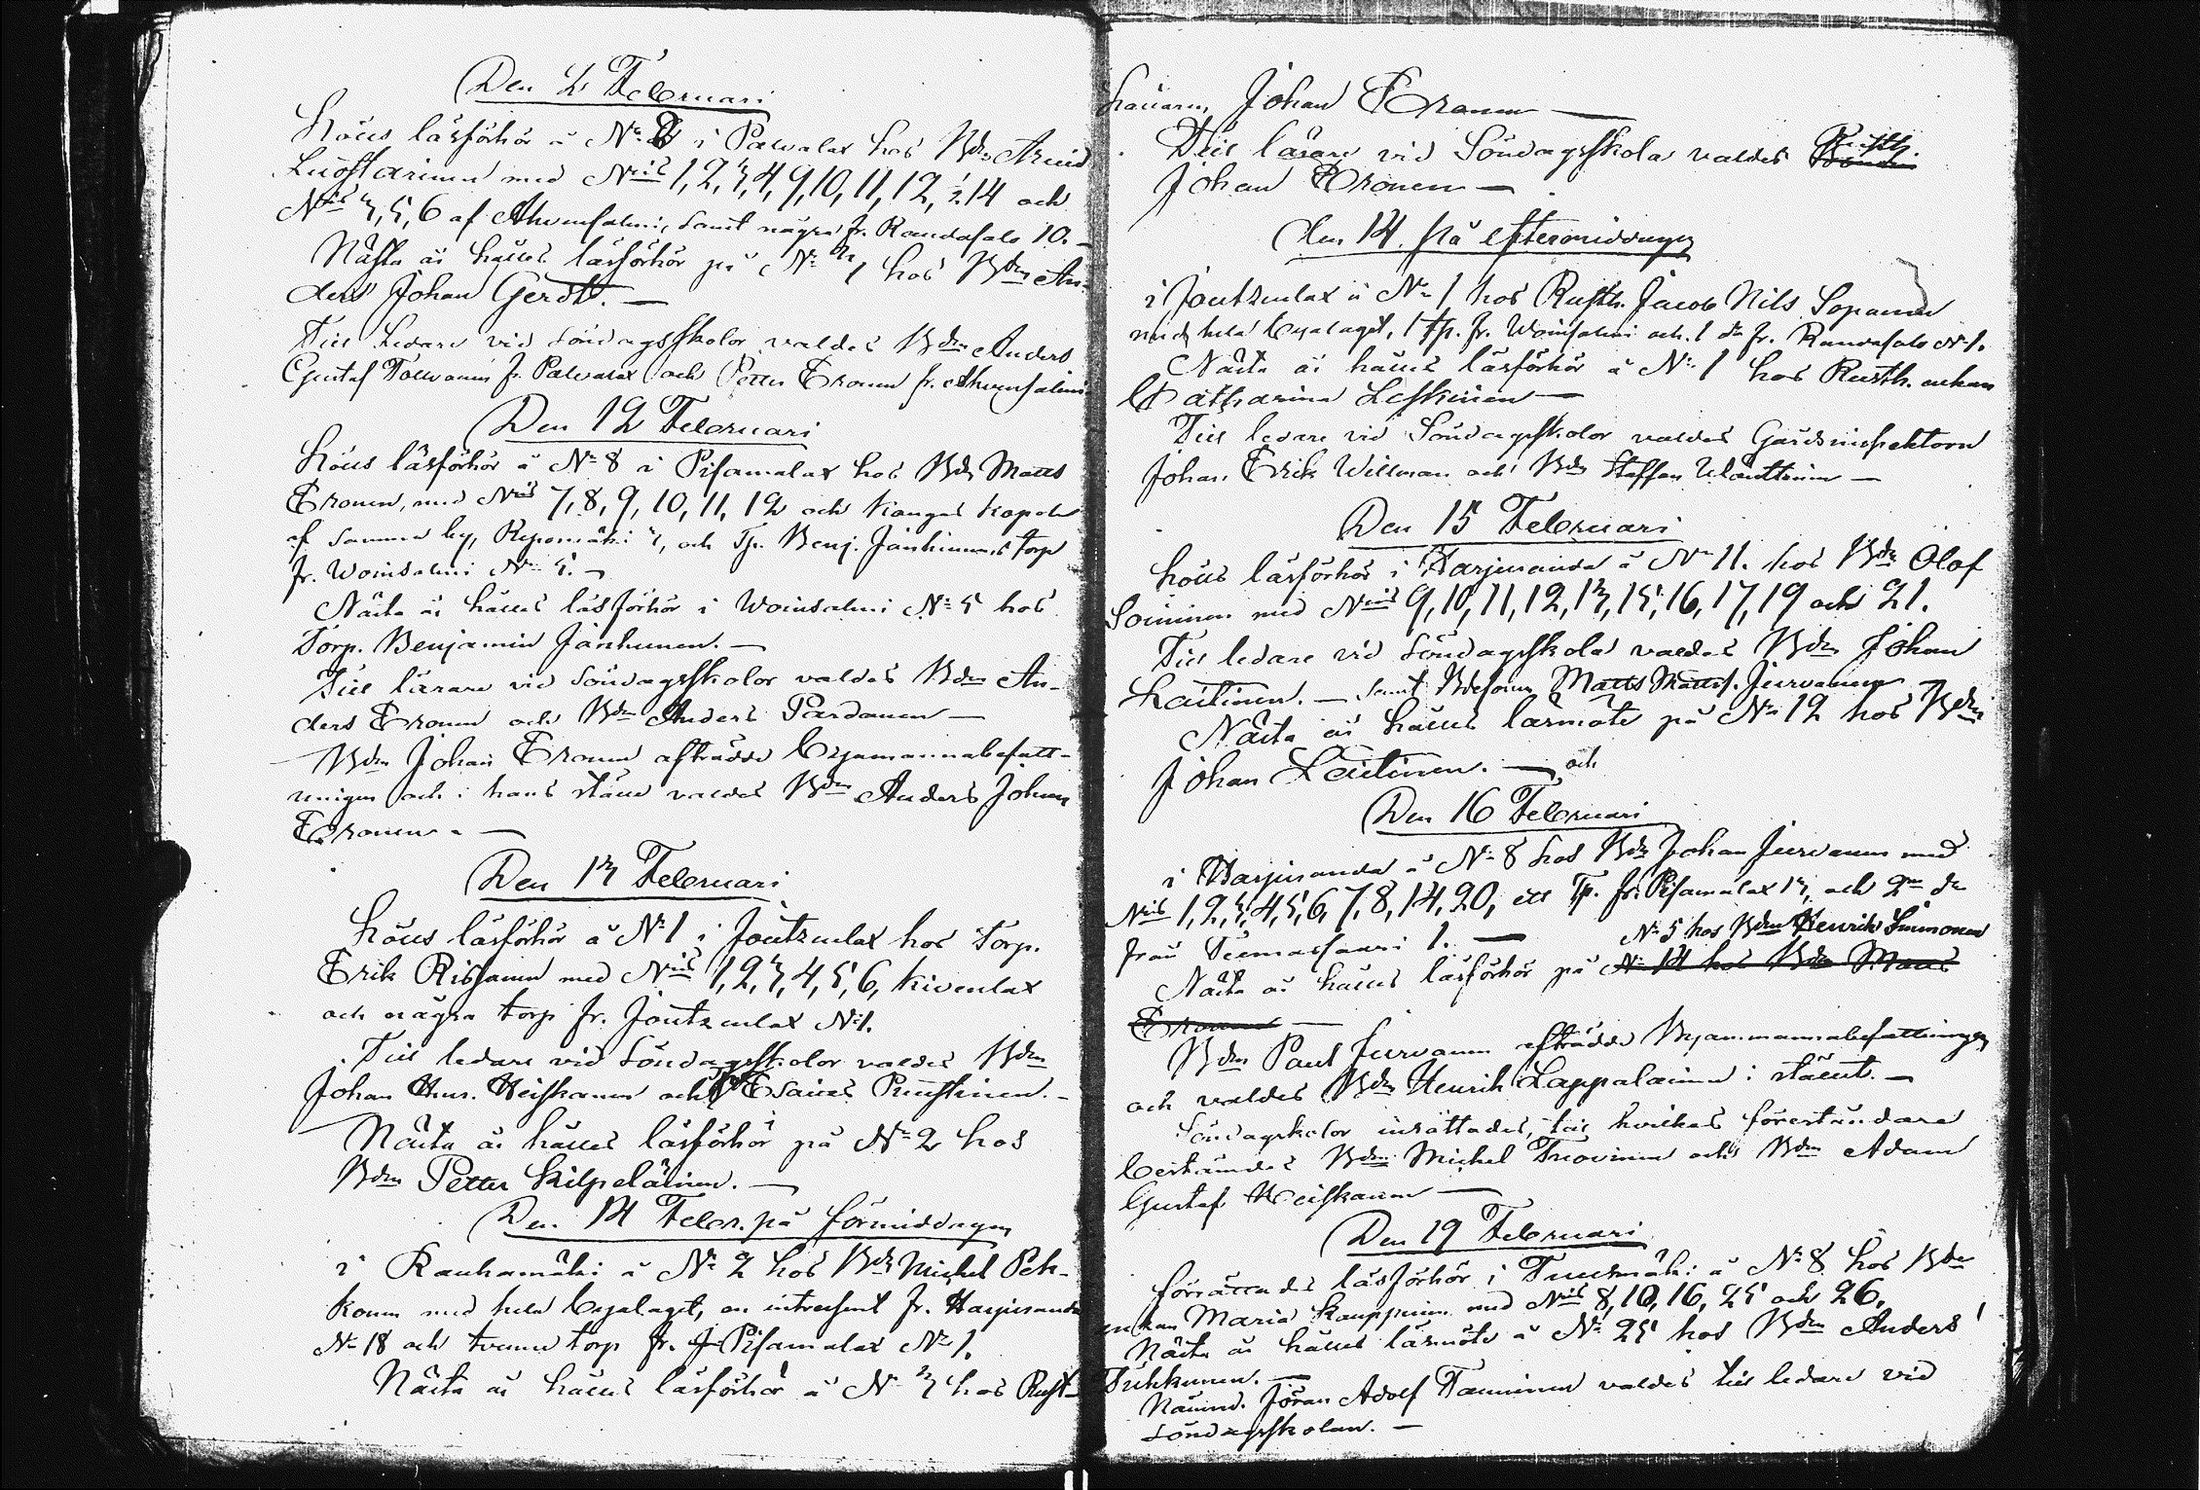 Den 2 Februari
Hölls läsförhör å No 2 i Pawalax hos Bdn Arvid
Luostarinen med Nris 1, 2, 3, 4, 9, 10, 11, 12, ½ 14 och
Nris 3, 5, 6 af Ahvensalmi, samt några fr. Randasalo 10. -
Nästa år hålles läsförhör på No 3 hos Bdn An-
ders Johan Gerdt. -
Till Ledare vid söndagsskolor valdes Bdn Anders
Gustaf Tolvanen fr. Pawalax och Petter Eronen fr. Ahvensalmi
Den 12 Februari
Hölls läsförhör å No 8 i Pisamalax hos Bdn Matts
Eronen, med Nris 7, 8, 9, 10, 11, 12 och Kangas
af samma by, Repomäki 3, och Tp. Benj. Jänhunens torp
fr. Woinsalmi No 5. -
Nästa år hålles läsförhör i Woinsalmi No 5 hos
Torp. Benjamin Jänhunen. -
Till lärare vid söndagsskolor valdes Bdn An-
ders Eronen och Bdn Anders Pardanen -
Bdn Johan Eronen afträdde Byamannabefatt-
ningen och i hans ställe valdes Bdn Anders Johan
Eronen. -
Den 13 Februari
Hölls läsförhör å No 1 i Joutzenlax hos Torp.
Erik Rissanen med Nris 1, 2, 3, 4, 5, 6, Kivenlax
och några torp fr. Joutzenlax No 1.
Till ledare vid söndagsskolor valdes Bdn
Johan Heiskanen och Esaias Puustinen. -
Nästa år hålles läsförhör på No 2 hos
Bdn Petter Kilpeläinen. -
Den 14 Febr. på förmiddagen
i Rauhamäki å No 2 hos Bdn Michel Pek-
konen med hela byalaget, en fr. Harjuranda
No 18 och tvenne torp fr. Pisamalax No 1.
Nästa år hålles läsförhör å No 3 hos Rust-
hållaren Johan Eronen -
Till lärare vid Söndagsskola valdes Rusth.
Johan Eronen -
den 14 på eftermiddagen
i Joutzenlax å No 1 hos Rusth. Jacob Nils Sopanen
med hela byalaget, 1 tp. fr. Woinsalmi och 1 do fr. Randasalo No 1.
Nästa år hålles läsförhör å No 1 hos Rusth. enkan
Catharina Leskinen -
Till ledare vid Söndagsskolor valdes Gårdsinspektorn
Johan Erik Willman och Bdn Staffan
Den 15 Februari
hölls läsförhör i Harjuranda å No 11. hos Bdn Olof
Soininen med Nris 9, 10, 11, 12, 13, 15, 16, 17, 19 och 21.
Till ledare vid söndagsskola valdes Bdn Johan
Laitinen. - samt Bdesonen Matts Mattss. Jurvanen
Nästa år hålles läsmöte på No 12 hos Bdn
Johan Laitinen. - och
Den 16 Februari
i Harjuranda å No 8 hos Bdn Johan Jurvanen med
Nris 1, 2, 3, 4, 5, 6, 7, 8, 14, 20, ett Tp. fr. Pisamalax 13, och 2ne do
från 1. - No 5 hos Bdn Henrik Simonen
Nästa år hålles läsförhör på No 14 hos Bdn Matts
Eronen -
Bdn Paul Jurvanen afträdde Byamannabefattningen
och valdes Bdn Henrik Lappalainen i stället. -
Söndagskolor inrättades, till hvilkas föreståndare
bestämdes Bdn Michel Truovinen och Bdn Adam
Gustaf Heiskanen -
Den 19 Februari
förrättades läsförhör i Tuusmäki å No 8 hos Bdn
enkan Maria Kauppinen med Nris 8, 10, 16, 25 och 26.
Nästa år hålles läsmöte å No 25 hos Bdn Anders
Tuhkunen. -
Nämnd. Jöran Adolf Tanninen valdes till ledare vid
söndagsskolan. -